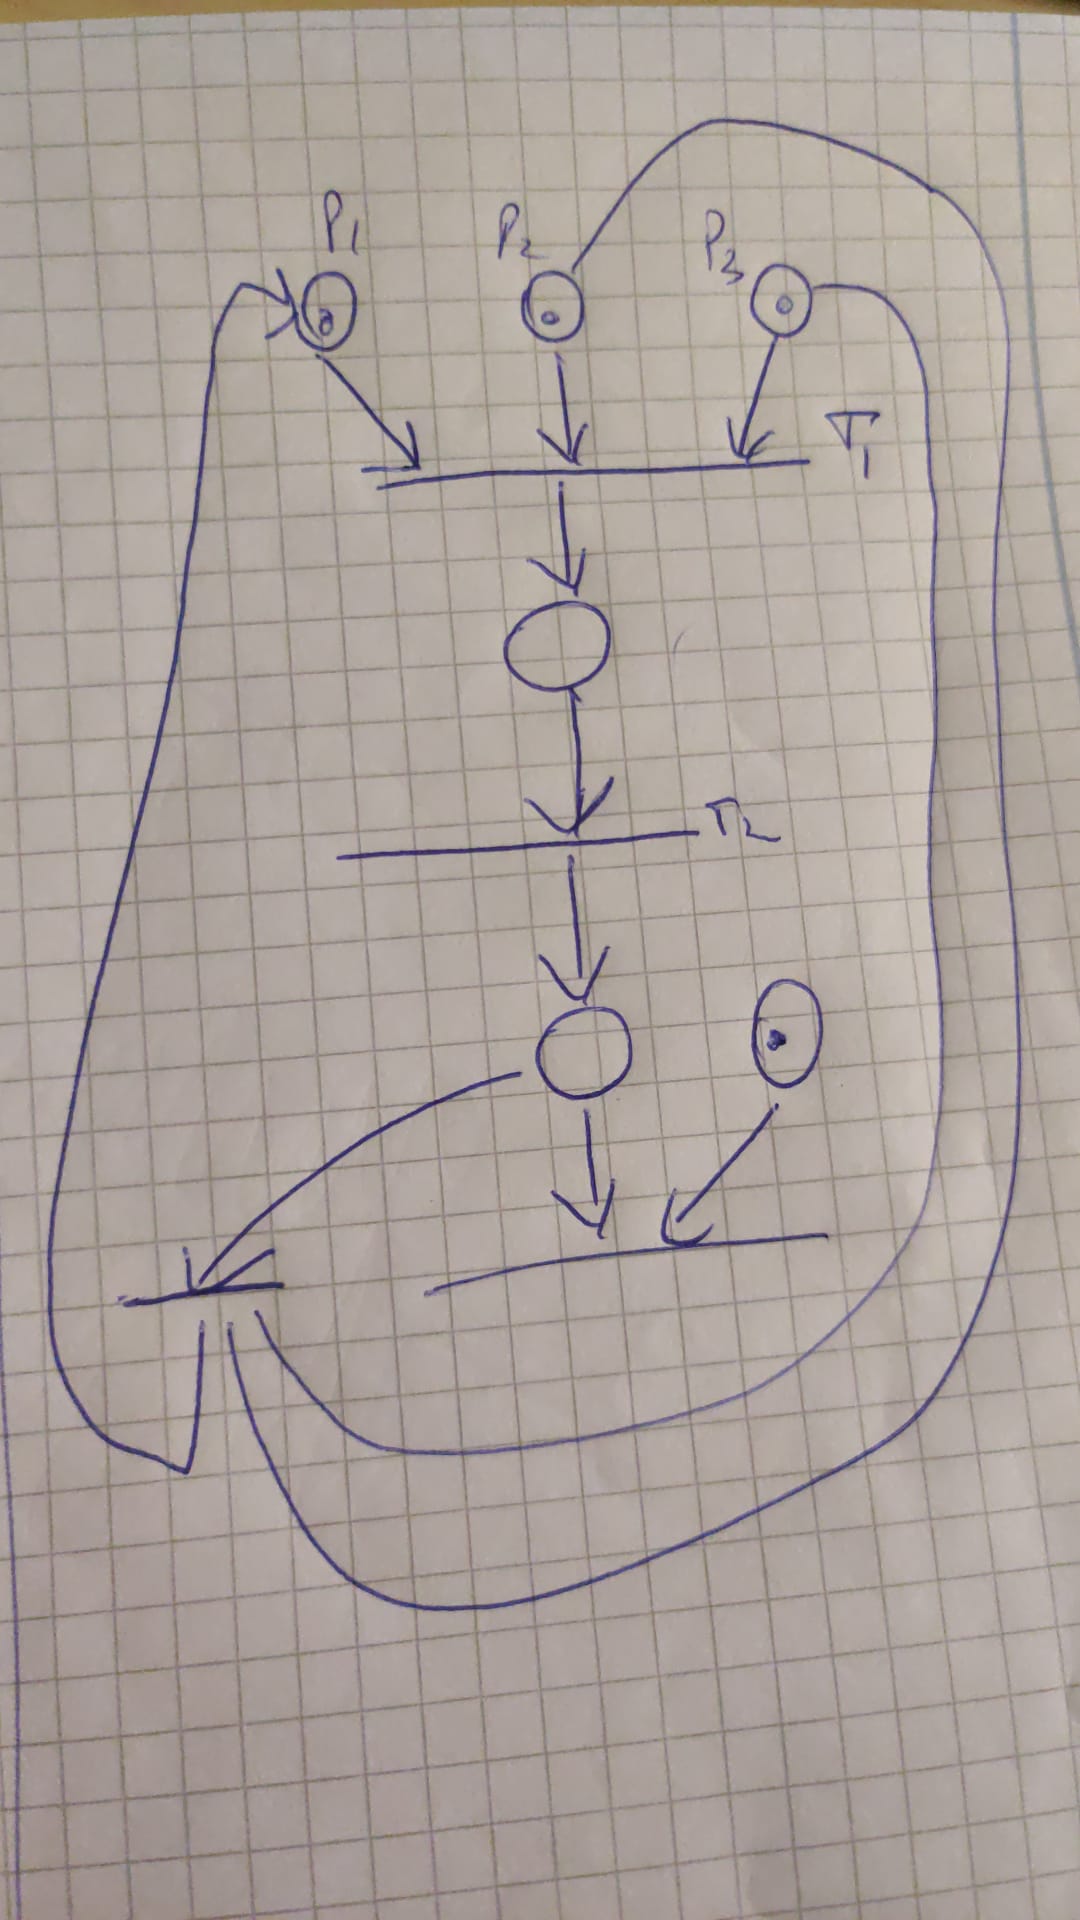 P1 P2 P3
T1
T2